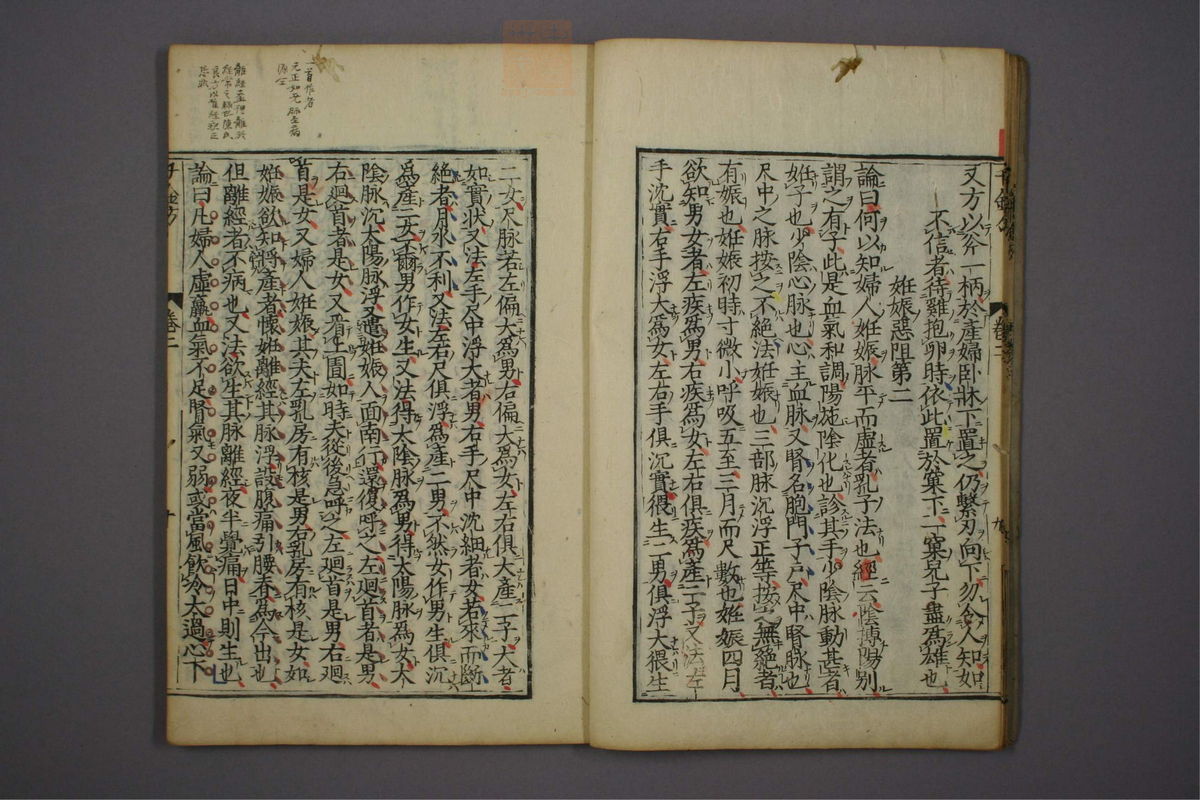 又方以斧一柄於產婦臥牀下置之仍繫刃向下勿令人知如
不信者待雞抱卵時依此置於窠下一窠兒子盡爲雄也
姙娠惡阻第二
論曰何以知婦人姙娠脉平而虛者乳子法也經云陰搏陽別
謂之有子此是血氣和調陽施陰化也診其手少陰脉動甚者
姙子也少陰心脉也心主血脉又腎名胞門子戶尺中腎脉也
尺中之脉按之不絶法姙娠也三部脉沉浮正等按之無絶者
有娠也姙娠初時寸微小呼吸五至三月而尺數也姙娠四月
欲知男女者左疾爲男右疾爲女左右俱疾爲產二子又法左
手沈實右手浮大爲女左右手俱沉實猥生二男俱浮大猥生
二女尺脉若左偏大爲男右偏大爲女左右俱大產二子大者
如實狀又法左手尺中浮大者男右手尺中沈細者女若來而斷
絶者月水不利又法左右尺俱浮爲產二男不然女作男生俱沉
爲產二女不爾男作女生又法得太陰脉爲男得太陽脉爲女太
陰脉沉太陽脉浮又遣姙娠人面南行還復呼之左廻首者是男
右廻首者是女又看上圊如時夫從後急呼之左廻首是男右廻
首是女又婦人姙娠其夫左乳房有核是男右乳房有核是女如
姙娠欲知將產者懷姙離經其脉浮設腹痛引腰脊爲今出也
但離經者不病也又法欲生其脉離經夜半覺痛日中則生也
論曰凡婦人虛羸血氣不足腎氣又弱或當風飲冷太過心下
卷二
十